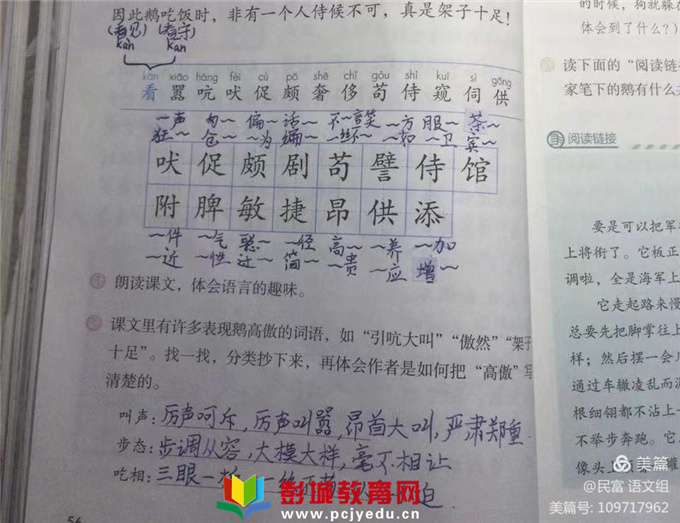 因此鹅吃饭时，非有一个人侍候不可，真是架子十足！
(看见) (看守)
kàn kān
kān xiāo háng fèi cù pō shē chǐ gǒu shì kuī sì gōng
看 嚣 吭 吠 促 颇 奢 侈 苟 侍 窥 伺 供
～声 匆～ 偏～ 话～ 不～言笑 ～方 服～ 茶～
狂～ 仓～ ～为 编～ 一丝不～ ～如 ～卫 宾～
吠 促 颇 剧 苟 譬 侍 馆
附 脾 敏 捷 昂 供 添
～件 ～气 聪～ ～径 高～ ～养 ～加
～近 ～性 简～ ～贵 ～应 增～
朗读课文，体会语言的趣味。
课文里有许多表现鹅高傲的词语，如“引吭大叫”“傲然”“架子
十足”。找一找，分类抄下来，再体会作者是如何把“高傲”写
清楚的。
叫声：厉声呵斥，厉声叫嚣，昂首大叫，严肃郑重
步态：步调从容，大模大样，毫不相让
吃相：三眼一板
56
的时候，狗就躲在
体会到了什么？）
读下面的“阅读链接
家笔下的鹅有什么共
阅读链接
要是可以把军
上将衔了。它板正
调啦，全是海军上
它走起路来慢
总要先把脚掌往上
样；然后摆一会儿
通过车辙凌乱而泥
根细翎都不沾上一
不举步奔跑。它
像头上顶
彭城教育网
www.pcjyedu.cn
美篇
@民富 语文组
美篇号: 109717962